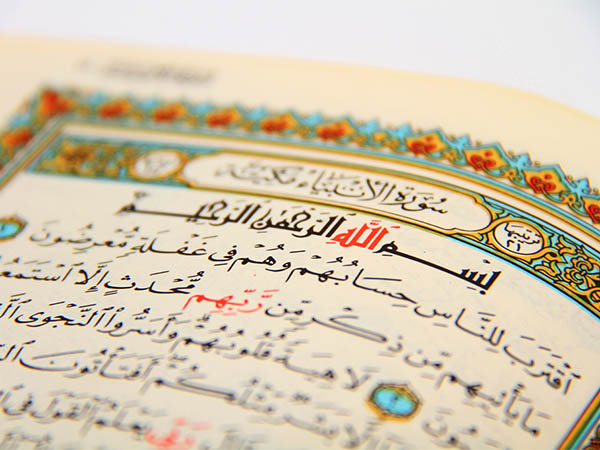 سُورَةُ الْأَنْبِيَاءِ مَكِّيَّة
ترتيبها ٢١
بِسْمِ اللَّهِ الرَّحْمَٰنِ الرَّحِيمِ
ٱقْتَرَبَ لِلنَّاسِ حِسَابُهُمْ وَهُمْ فِي غَفْلَةٍ مُّعْرِضُونَ
مَا يَأْتِيهِم مِّن ذِكْرٍ مِّن رَّبِّهِم مُّحْدَثٍ إِلَّا ٱسْتَمَعُ
لَاهِيَةً قُلُوبُهُمْ وَأَسَرُّوا۟ ٱلنَّجْوَى
إِلَّا بَشَرٌ مِّثْلُكُمْ أَفَتَأْتُونَ
رَبِّي يَعْلَمُ ٱلْقَوْلَ فِي